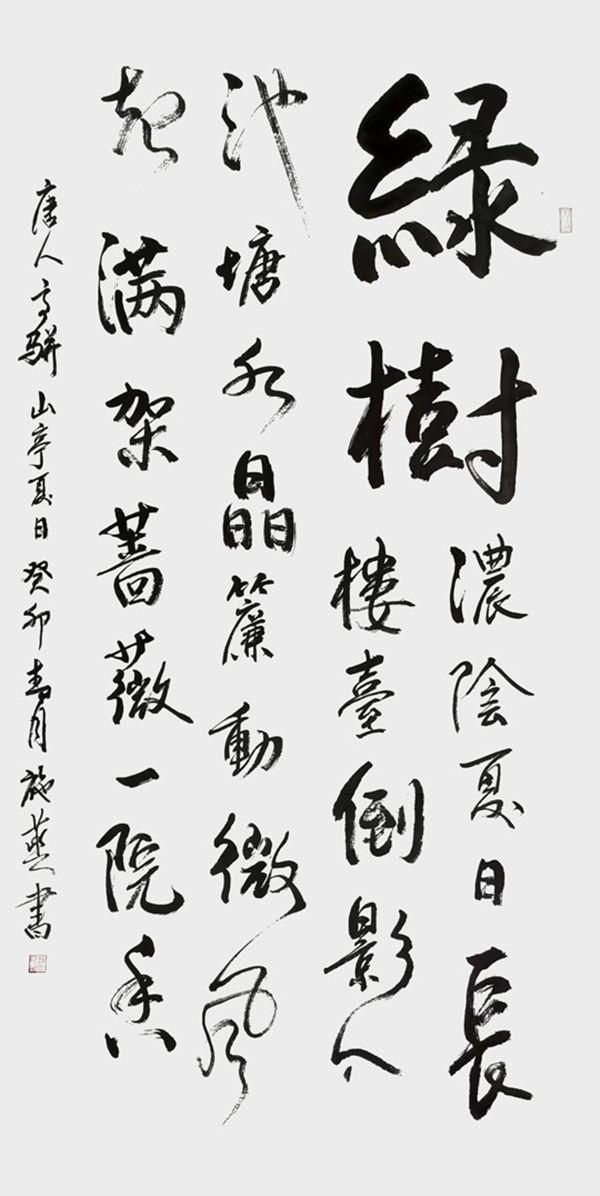 綠樹濃陰夏日長
樓臺倒影入
池塘水晶簾動微風
起滿架薔薇一院香
唐人高駢山亭夏日癸卯月施燕書